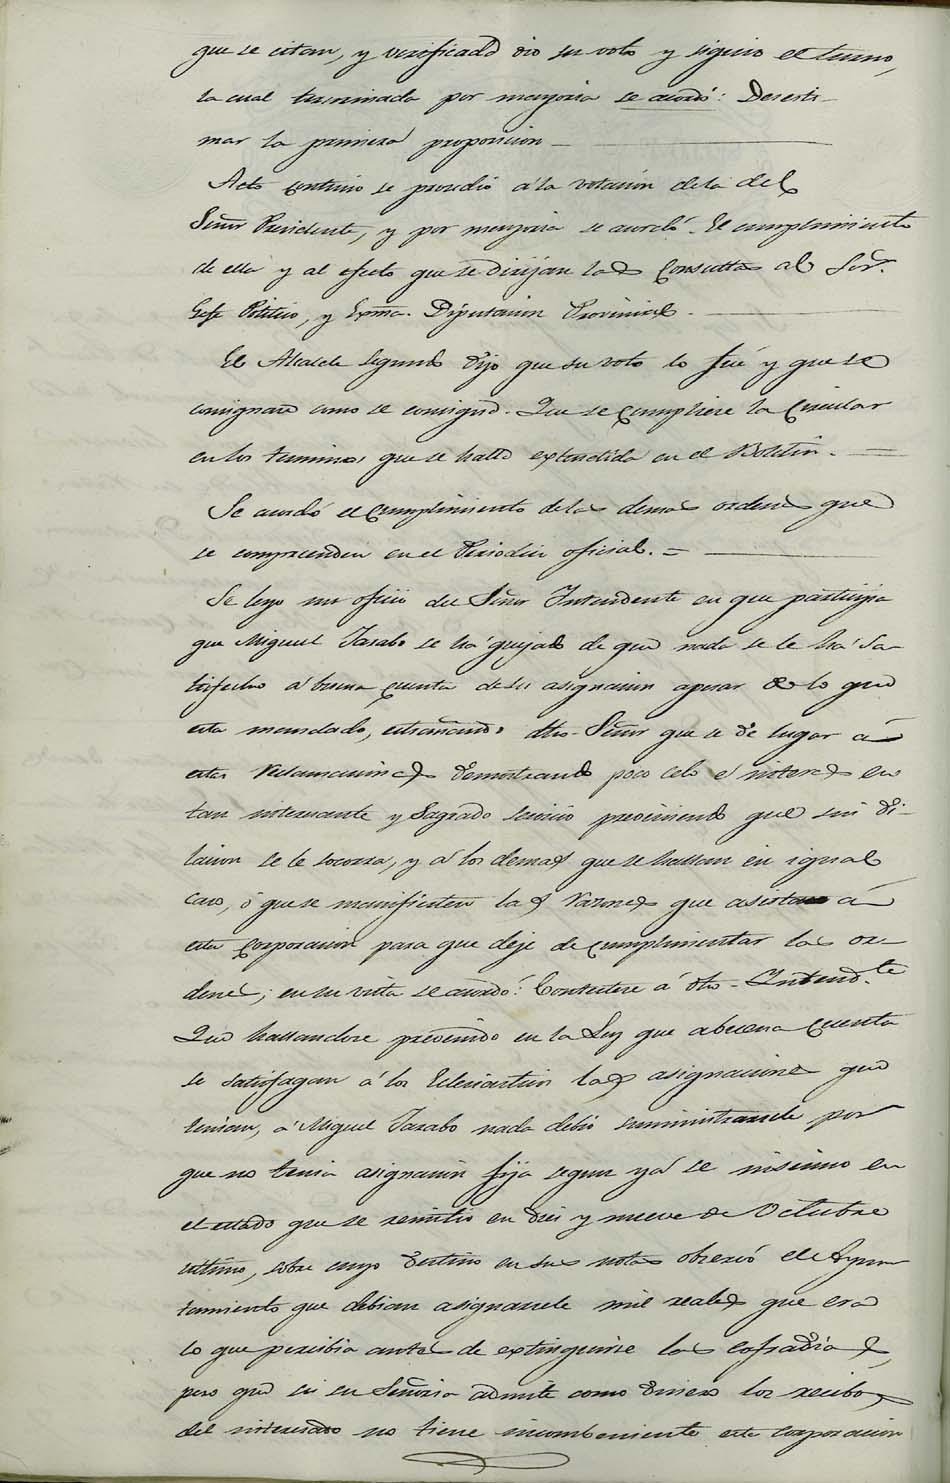 que se citan, y verificado dio su voto y siguio el turno,
la cual terminada por mayoria se acordó: Desesti-
mar la primera proposicion
Acto continuo se procedió á la votacion de la del
Señor Presidente, y por mayoria se acordó. El cumplimiento
de ella y al efecto que se dirijan las Consultas al Sor.
Gefe Politico, y Exma. Diputacion Provincial.
El Alcalde Segundo dijo que su voto lo fué y que se
consignara como se consignó. Que se cumpliere la Circular
en los terminos que se halla extendida en el Boletin.
Se acordó el cumplimiento de las demas ordenes que
se comprenden en el Periodico oficial. =
Se leyo un oficio del Señor Intendente en que participa
que Miguel Jarabo se há quejado de que nada se le há sa-
tisfecho á buena cuenta de su asignacion apesar de lo que
esta mandado, estrañando dho. Señor que se de lugar á
estas reclamaciones demostrando poco celo é interes en
tan interesante y Sagrado servicio previniendo que sin di-
lacion se le socorra, y á los demas que se hallan en igual
caso, ó que se manifiesten las razones que asistan á
esta corporacion para que deje de cumplimentar las or-
denes; en su vista se acordó: Contestese á dho. Intend.te
Que hallandose prevenido en la Ley que abuena cuenta
se satisfagan á los Eclesiasticos las asignaciones que
tenian, á Miguel Jarabo nada debió suministrarsele por
que no tenia asignacion fija segun yá se insinuo en
el estado que se remitio en diez y nueve de Octubre
ultimo, sobre cuyo destino en sus notas observó el Ayun
tamiento que debian asignarsele mil reales que era
lo que percibia antes de extinguirse las cofradias,
pero que si su Señoria admite como dinero los recibos
del interesado no tiene incombeniente esta corporacion